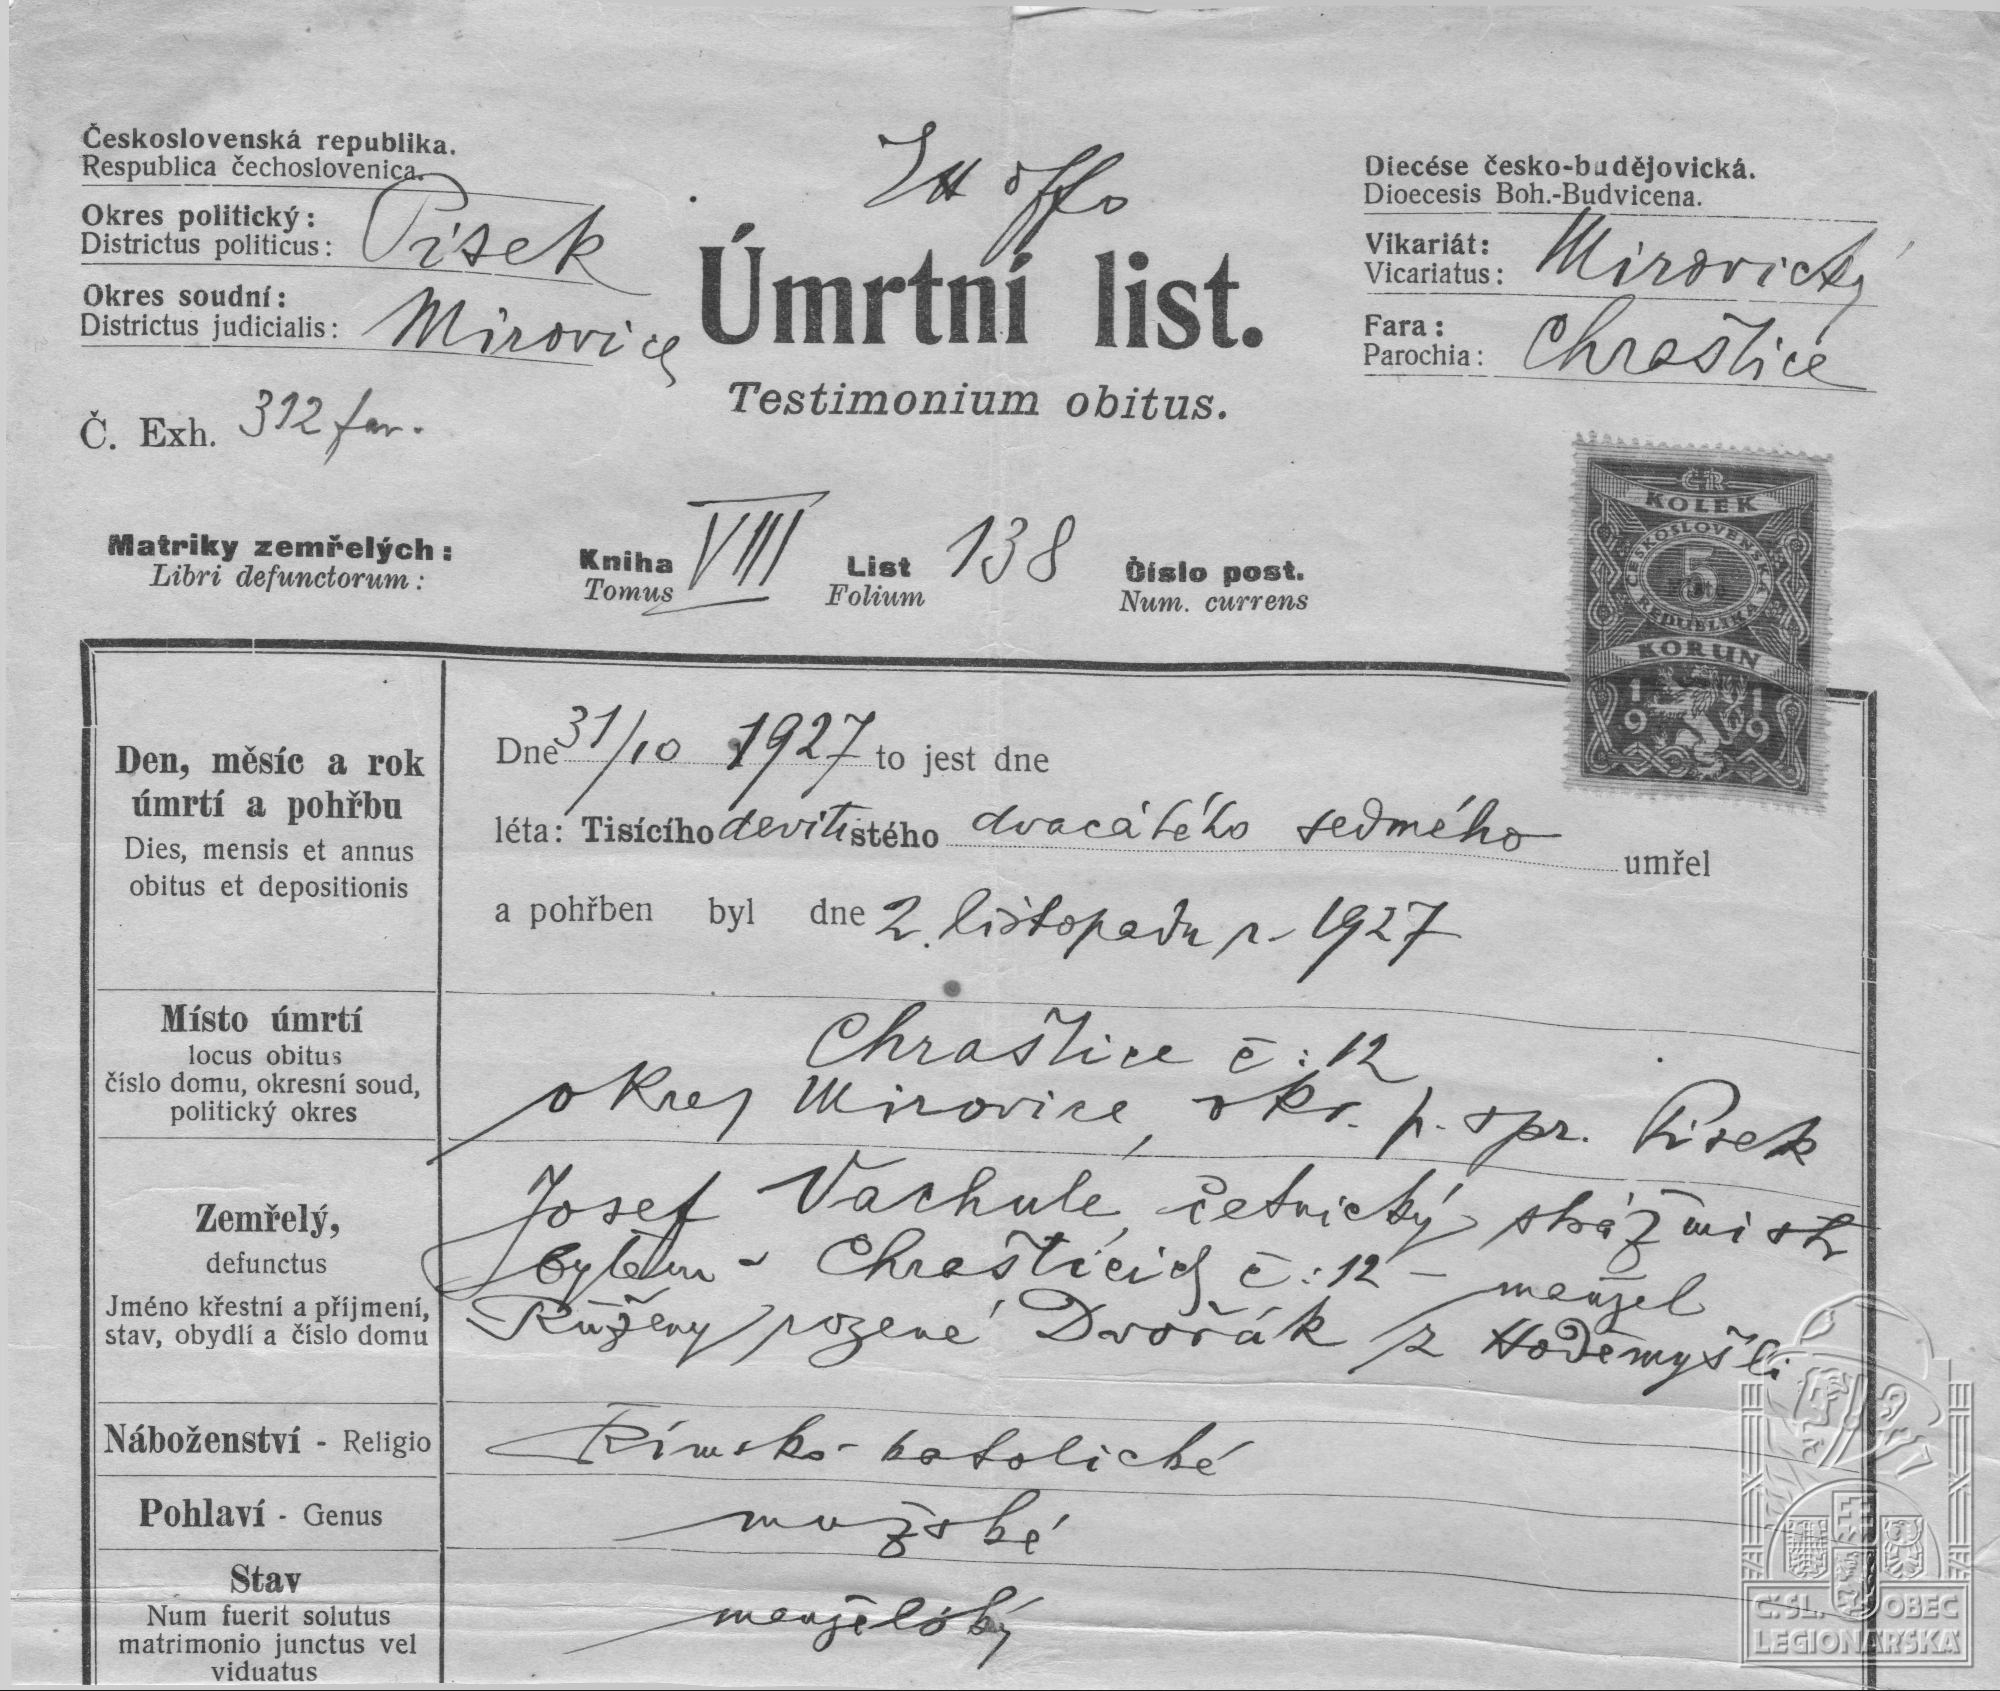 Československá republika.
Respublica čechoslovenica.
Okres politický: Písek
Districtus politicus:
Okres soudní: Mirovice
Districtus judicialis:
Č. Exh. 312 far.
Ex offo
Úmrtní list.
Testimonium obitus.
Diecése česko-budějovická.
Dioecesis Boh.-Budvicena.
Vikariát: Mirovický
Vicariatus:
Fara: Chraštice
Parochia:
Matriky zemřelých: Kniha VIII List 138 Číslo post.
Libri defunctorum: Tomus Folium Num. currens
ČR
KOLEK
ČESKOSLOVENSKÁ
5
REPUBLIKA
KORUN
1919
Den, měsíc a rok
úmrtí a pohřbu
Dies, mensis et annus
obitus et depositionis
Dne 31/10 1927 to jest dne
léta: Tisícího devítistého dvacátého sedmého umřel
a pohřben byl dne 2. listopadu r. 1927
Místo úmrtí
locus obitus
číslo domu, okresní soud,
politický okres
Chraštice č: 12
okres Mirovice, okr. p. spr. Písek
Zemřelý,
defunctus
Jméno křestní a příjmení,
stav, obydlí a číslo domu
Josef Vachule, četnický strážmistr
bytem v Chrašticích č: 12 - manžel
Růženy rozené Dvořák z Hoděmyšli
Náboženství - Religio
Římsko-katolické
Pohlaví - Genus
mužské
Stav
Num fuerit solutus
matrimonio junctus vel
viduatus
manželský
Č.SL. OBEC
LEGIONÁŘSKÁ